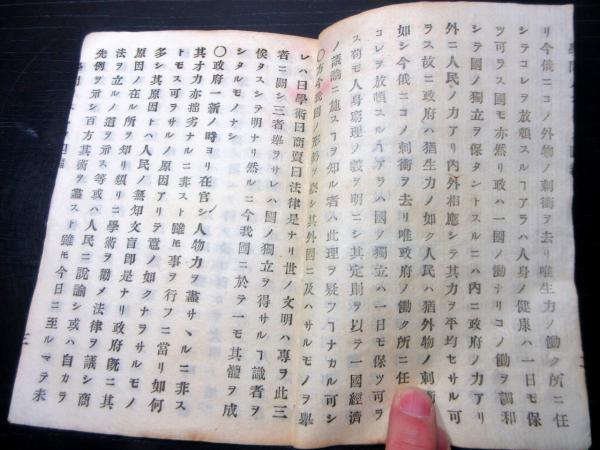 リ今俄ニコノ外物ノ刺衝ヲ去リ唯生力ノ働ク所ニ任
シテコレヲ放頓スルヿアラハ人身ノ健康ハ一日モ保
ツ可ラス國モ亦然リ政ハ一國ノ働ナリコノ働ヲ調和
シテ國ノ獨立ヲ保タントスルニハ内ニ政府ノ力アリ
外ニ人民ノ力アリ内外相應シテ其力ヲ平均セサル可
ラス故ニ政府ハ猶生力ノ如ク人民ハ猶外物ノ刺衝
如シ今俄ニコノ刺衝ヲ去リ唯政府ノ働ク所ニ任
コレヲ放頓スルヿアラハ國ノ獨立ハ一日モ保ツ可ラ
ス苟モ人身窮理ノ義ヲ明ニシ其定則ヲ以テ一國經濟
ノ議論ニ施スヿヲ知ル者ハ此理ヲ疑フヿナカル可シ
〇方今我國ノ形勢ヲ察シ其外國ニ及ハサルモノヲ擧
レハ曰學術曰商賣曰法律是ナリ世ノ文明ハ專ヲ此三
者ニ關シ三者擧ラサレハ國ノ獨立ヲ得サルヿ識者ヲ
俟タスシテ明ナリ然ルニ今我國ニ於テ一モ其體ヲ成
シタルモノナシ
〇政府一新ノ時ヨリ在官ノ人物力ヲ盡サヽルニ非ス
其才力亦拙劣ナルニ非スト雖モ事ヲ行フニ當リ如何
トモス可ラサルノ原因アリテ意ノ如クナラサルモノ
多シ其原因トハ人民ノ無知文盲即是ナリ政府既ニ其
原因ノ在ル所ヲ知リ頻リニ學術ヲ勸メ法律ヲ議シ商
法ヲ立ルノ道ヲ示ス等或ハ人民ニ說諭シ或ハ自カラ
先例ヲ示シ百方其術ヲ盡スト雖モ今日ニ至ルマテ未